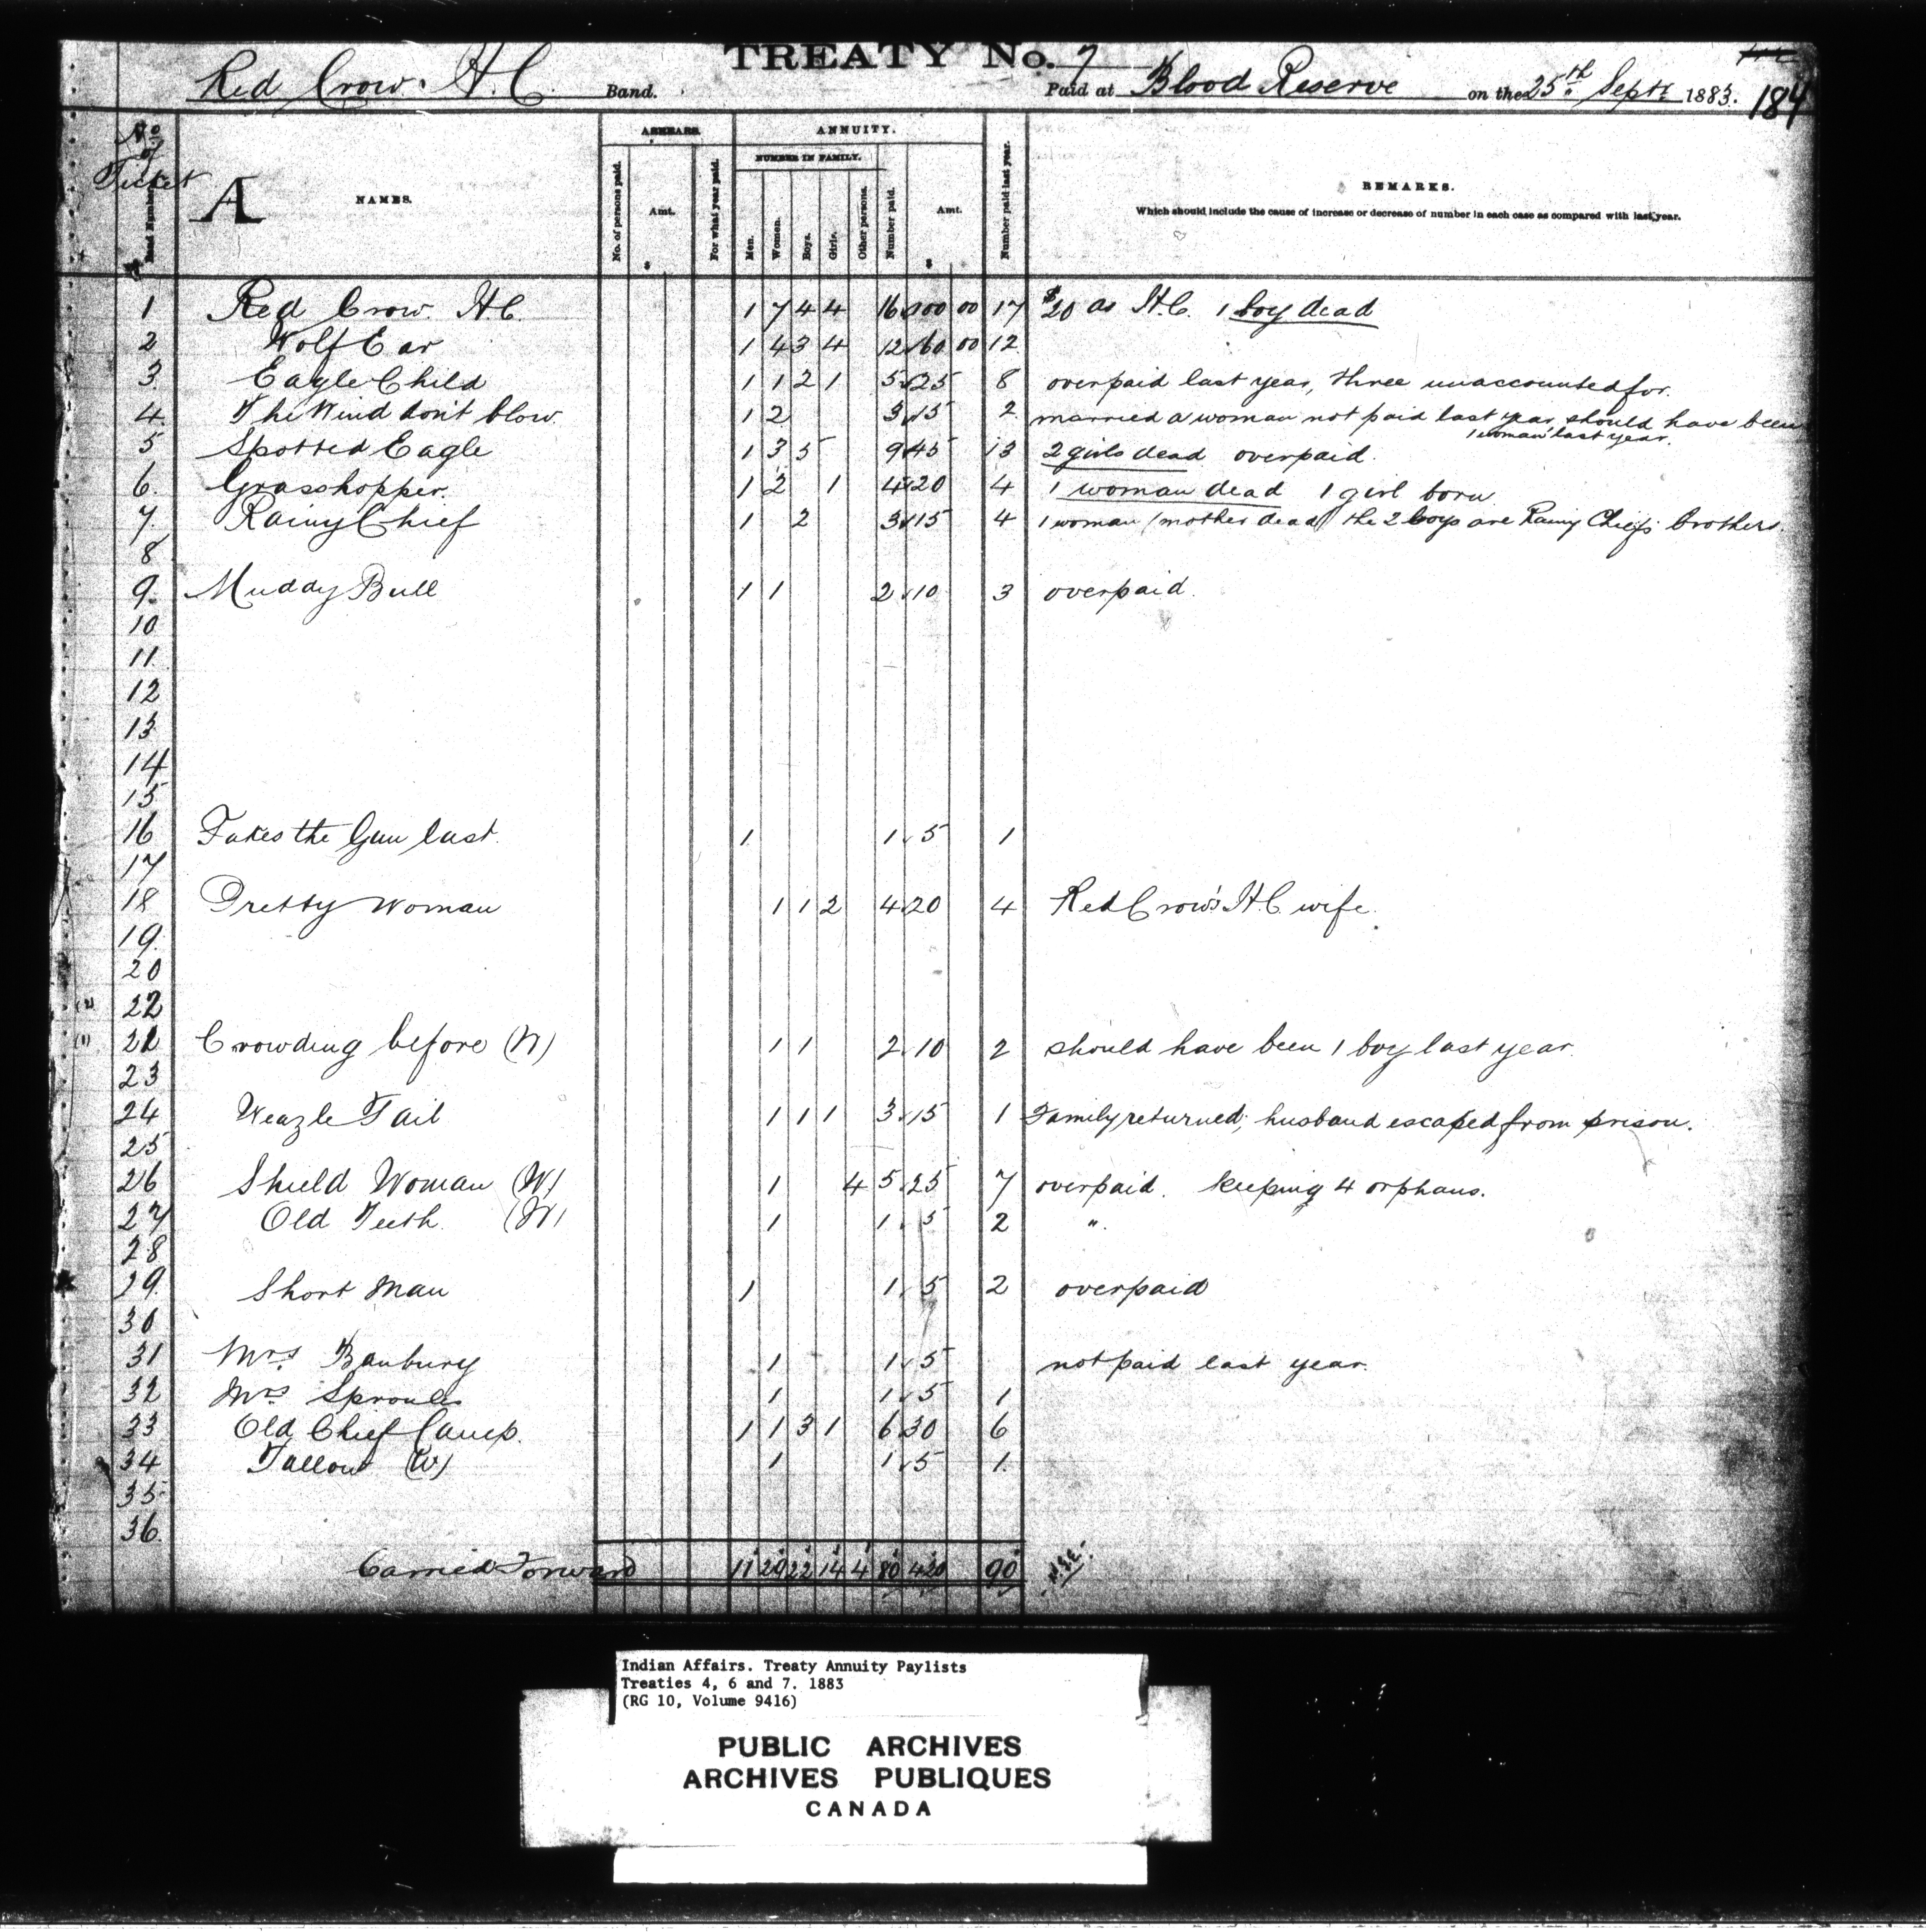 TREATY No. 7
Red Crow. H.C. Band. Paid at Blood Reserve on the 25th Septr 1883. 184
No of Ticket
A
NAMES.
ARREARS.
No. of persons paid.
Amt.
$
For what year paid.
ANNUITY.
NUMBER IN FAMILY.
Men.
Women.
Boys.
Girls.
Other persons.
Number paid.
Amt.
$
Number paid last year.
REMARKS.
Which should include the cause of increase or decrease of number in each case as compared with last year.
1 Red Crow. H.C. 1 7 4 4 16 100 00 17 $20 as H.C. 1 boy dead
2 Wolf Ear 1 4 3 4 12 60 00 12
3. Eagle Child 1 1 2 1 5 25 8 overpaid last year, three unaccounted for.
4. The Wind don't blow. 1 2 3 15 2 married a woman not paid last year, should have been
1 woman last year.
5 Spotted Eagle 1 3 5 9 45 13 2 girls dead overpaid.
6. Grasshopper. 1 2 1 4 20 4 1 woman dead 1 girl born
7. Rainy Chief 1 2 3 15 4 1 woman (mother dead) the 2 boys are Rainy Chief's brothers.
8
9. Muddy Bull 1 1 2 10 3 overpaid.
10.
11.
12
13
14
15
16 Takes the Gun last. 1 1 5 1
17
18 Pretty Woman 1 1 2 4 20 4 Red Crow's H.C. wife.
19.
20
(2) 22
(1) 21 Crowding before (W) 1 1 2 10 2 should have been 1 boy last year.
23
24 Weazle Tail 1 1 1 3 15 1 Family returned; husband escaped from prison.
25
26 Shield Woman (W) 1 4 5 25 7 overpaid. keeping 4 orphans.
27 Old Teeth. (W) 1 1 5 2 ".
28
29 Short Man 1 1 5 2 overpaid
30
31 Mrs. Banbury 1 1 5 not paid last year.
32 Mrs Sproule 1 1 5 1
33 Old Chief Camp. 1 1 3 1 6 30 6
34 Tallow (W) 1 1 5 1.
35
36.
Carried Forward 11 29 22 14 4 80 420 90
Indian Affairs. Treaty Annuity Paylists
Treaties 4, 6 and 7. 1883
(RG 10, Volume 9416)
PUBLIC ARCHIVES
ARCHIVES PUBLIQUES
CANADA